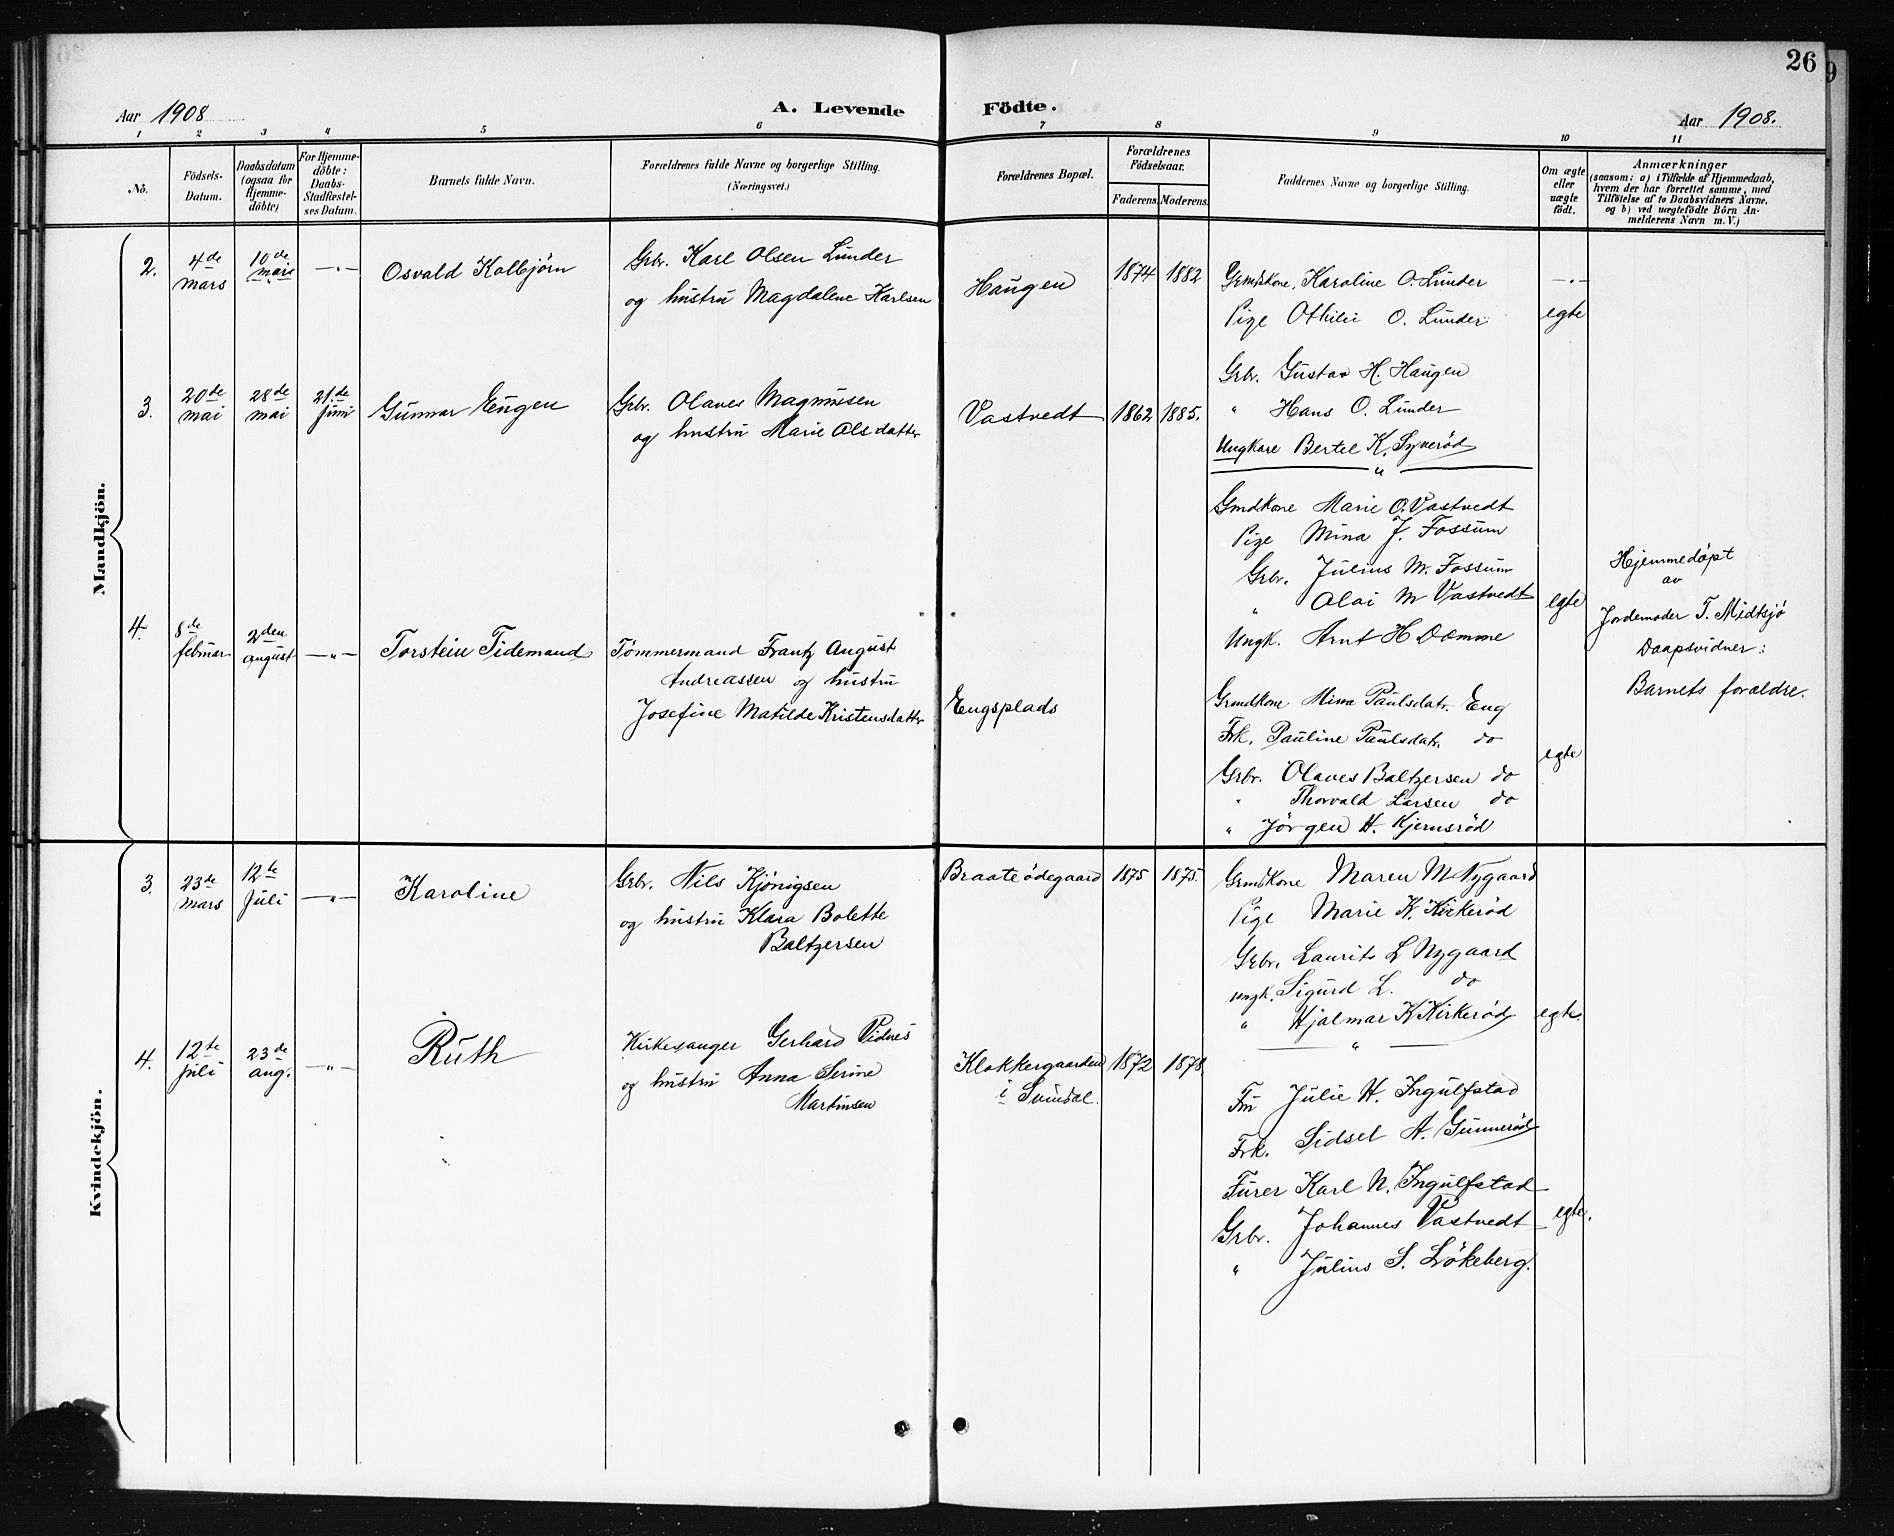 26
9
Aar 1908
A. Levende Födte.
Aar 1908.
1 2 3 4 5 6 7 8 9 10 11
No.
Födsels-
Datum.
Daabsdatum
(ogsaa for
Hjemme-
döbte)
For Hjemme-
döbte:
Daabs-
Stadfæstel-
ses Datum.
Barnets fulde Navn.
Forældrenes fulde Navne og borgerlige Stilling.
(Næringsvei.)
Forældrenes Bopæl.
Forældrenes
Födselsaar.
Faderens. Moderens.
Faddernes Navne og borgerlige Stilling.
Om ægte
eller
uægte
födt.
Anmærkninger
(saasom: a) i Tilfælde af Hjemmedaab,
hvem der har forrettet samme, med
Tilföielse af to Daabsvidners Navne,
og b) ved uægtefödte Börn An-
melderens Navn m. V.)
Mandkjön.
2.
4de
mars
10de
mars
—"—
Osvald Kolbjørn
Gbr. Karl Olsen Lunder
og hustru Magdalene Karlsen
Haugen
1874
1882
Grmdskone, Karoline O. Lunder
Pige Othilie O. Lunder
Gbr. Gustav H. Haugen
" Hans O. Lunder
Ungkare Bertel K. Syverød
"
—"—
egte
3.
20de
mai
28de
mai
21.de
juni
Gunnar Eugen
Gbr. Olaves Magnussen
og hustru Marie Olsdatter
Vastvedt
1862
1885.
Gmdkone Marie O. Vastvedt
Pige Mina J. Fossum
Gbr. Julius M. Fossum
" Olai M Vastvedt
Ungk. Arnt H Damme
egte
Hjemmedöpt
av
Jordemoder T. Midtsjö
Daapsvidner:
Barnets foraldre.
4.
8de
februar
2den
august
—"—
Torstein Tidemand
Tømmermand Frantz August
Andreassen og hustru
Josefine Matilde Kristensdatter
Engsplads
Grmdkone Mina Paulsdatr. Eng
Frk. Pauline Paulsdatr. do
Gbr. Olaves Baltzersen do
" Thorvald Larsen do
" Jörgen H. Kjernsröd
egte
Kvindekjön.
3.
23de
mars
12te
juli
—"—
Karoline
Gbr. Nils Kjönigsen
og hustru Klara Bolette
Baltzersen
Braateödegaard
1875
1875.
Grmdkone Maren M Nygaard
Pige Marie K. Kirkeröd
Gbr. Laurits L Nygaard
ungk. Sigurd L. do
" Hjalmar K Kirkeröd
"
egte.
4.
12te
juli
23de
aug.
—"—
Ruth
Kirkesanger Gerhard Vidnes
og hustru Anna Serine
Martinsen
Klokkergaarden
i Svindal.
1872
1878.
Fru Julie H. Ingulfstad
Frk. Sidsel A. Gunneröd
Furer Karl N. Ingulfstad
Gbr. Johannes Vastvedt
" Julius S. Lökeberg.
egte.